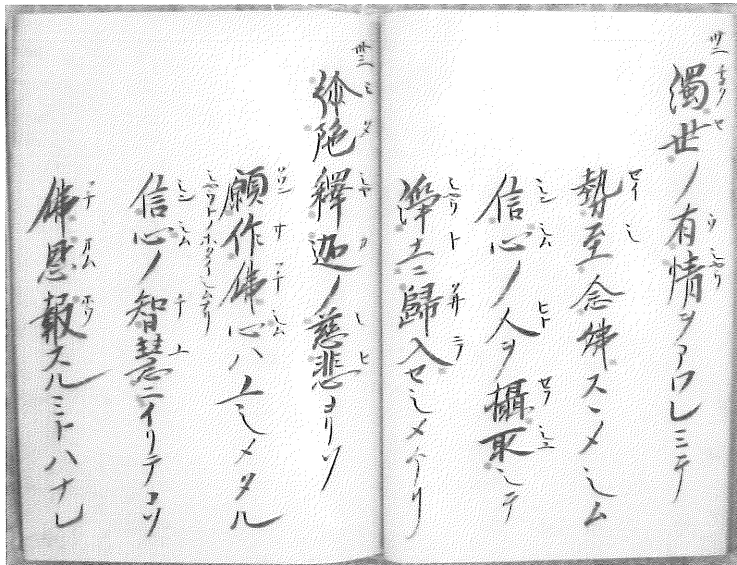 卅二
濁世ノ有情ヲアワレミテ
勢至念佛スヽメシム
信心ノ人ヲ攝取シテ
淨土ニ歸入セシメケリ
卅三
弥陁釋迦ノ慈悲ヨリソ
願作佛心ハエシメタル
信心ノ智慧ニイリテコソ
佛恩報スルミトハナレ